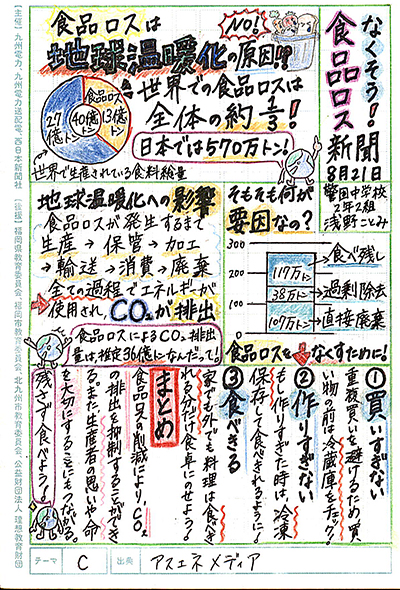 なくそう!
食品ロス
新聞
8月21日
菅田中学校
2年2組
浅野ことみ
食品ロスは
NO!
地球温暖化の原因!?
食品ロス
13億トン
27億トン
40億トン
世界で生産されている食料総量
世界での食品ロスは
全体の約1/3!
日本では570万トン!
地球温暖化への影響
食品ロスが発生するまで
生産→保管→加工
→輸送→消費→廃棄
全ての過程でエネルギーが
使用されCO₂が排出
食品ロスによるCO₂排出
量は推定36億tなんだって!
そもそも何が
要因なの?
300
200
100
0
117万トン
38万トン
107万トン
→食べ残し
→過剰除去
→直接廃棄
食品ロスをなくすために!
①買いすぎない
重複買いを避けるため買
い物の前は冷蔵庫をチェック!
②作りすぎない
もし作りすぎた時は、冷凍
保存して食べきれるように!
③食べきる
家でも外でも料理は食べき
れる分だけ食卓に出せよう!
まとめ
食品ロス削減により、CO₂
の排出を抑制することができ
る。また生産者の思いや命
を大切にすることにもつながる。
残さず食べよう!
テーマ
C
出典
アスエネメディア
【主催】九州電力、九州電力送配電、西日本新聞社 【後援】福岡県教育委員会、福岡市教育委員会、北九州市教育委員会、公益財団法人 理想教育財団